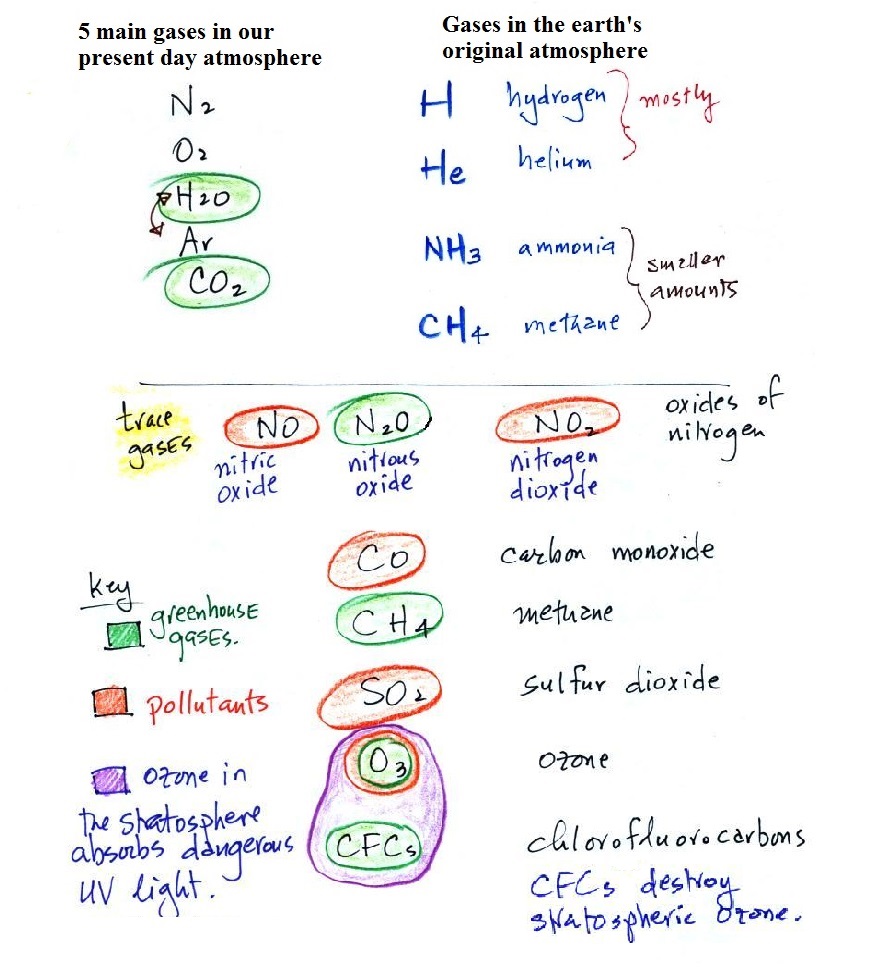 5 main gases in our
present day atmosphere
N2
O2
H2O
Ar
CO2
Gases in the earth's
original atmosphere
H hydrogen
He helium
mostly
NH3 ammonia
CH4 methane
smaller
amounts
trace
gases
NO
nitric
oxide
N2O
nitrous
oxide
NO2
nitrogen
dioxide
oxides of
nitrogen
CO carbon monoxide
CH4 methane
SO2 sulfur dioxide
O3 ozone
CFCs chlorofluorocarbons
CFCs destroy
stratospheric ozone.
key
greenhouse
gases.
pollutants
ozone in
the stratosphere
absorbs dangerous
UV light.